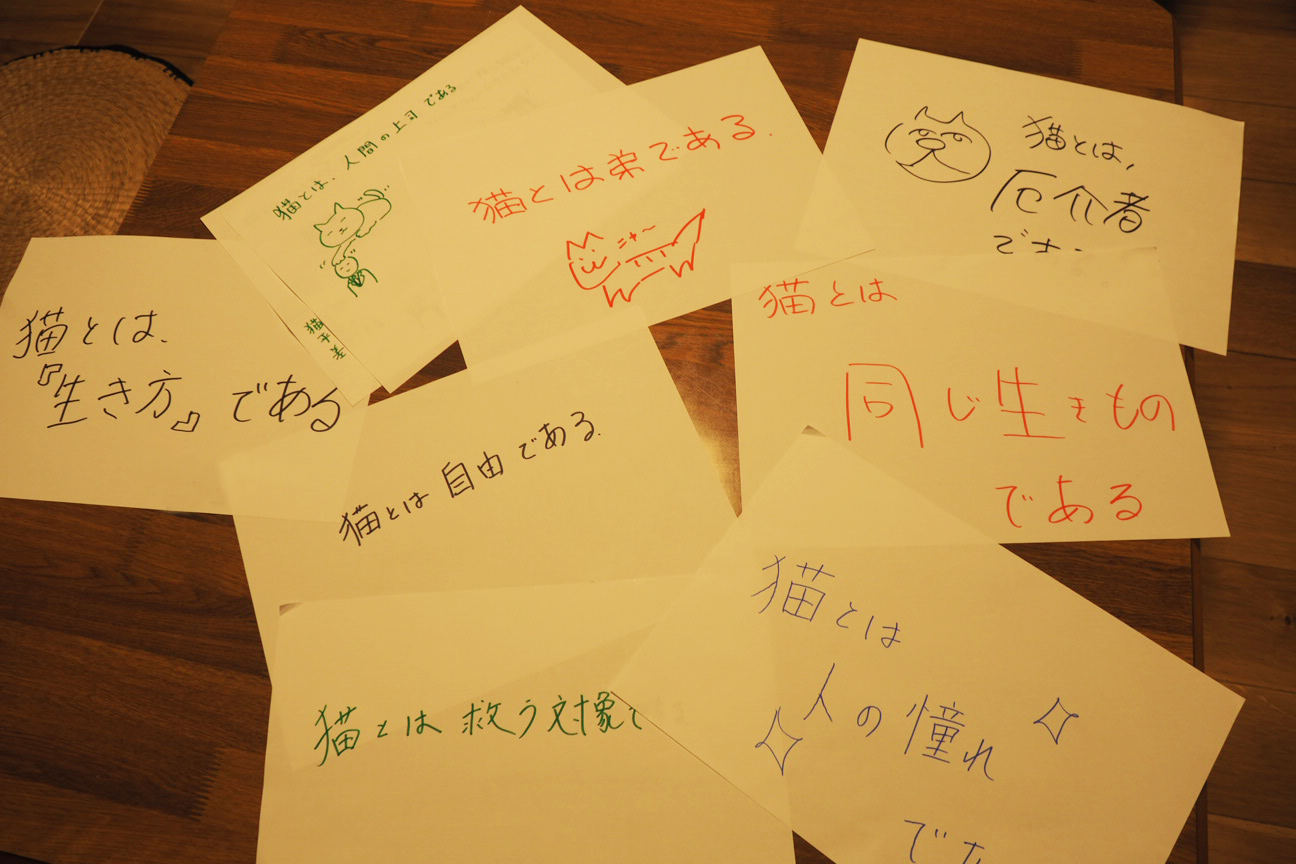 猫とは、人間の上司である
猫とは弟である.
ニャ〜
猫とは,
厄介者
猫とは、
『生き方』である
猫とは
同じ生きもの
である
猫とは自由である.
猫とは
人の憧れ
猫とは救う対象